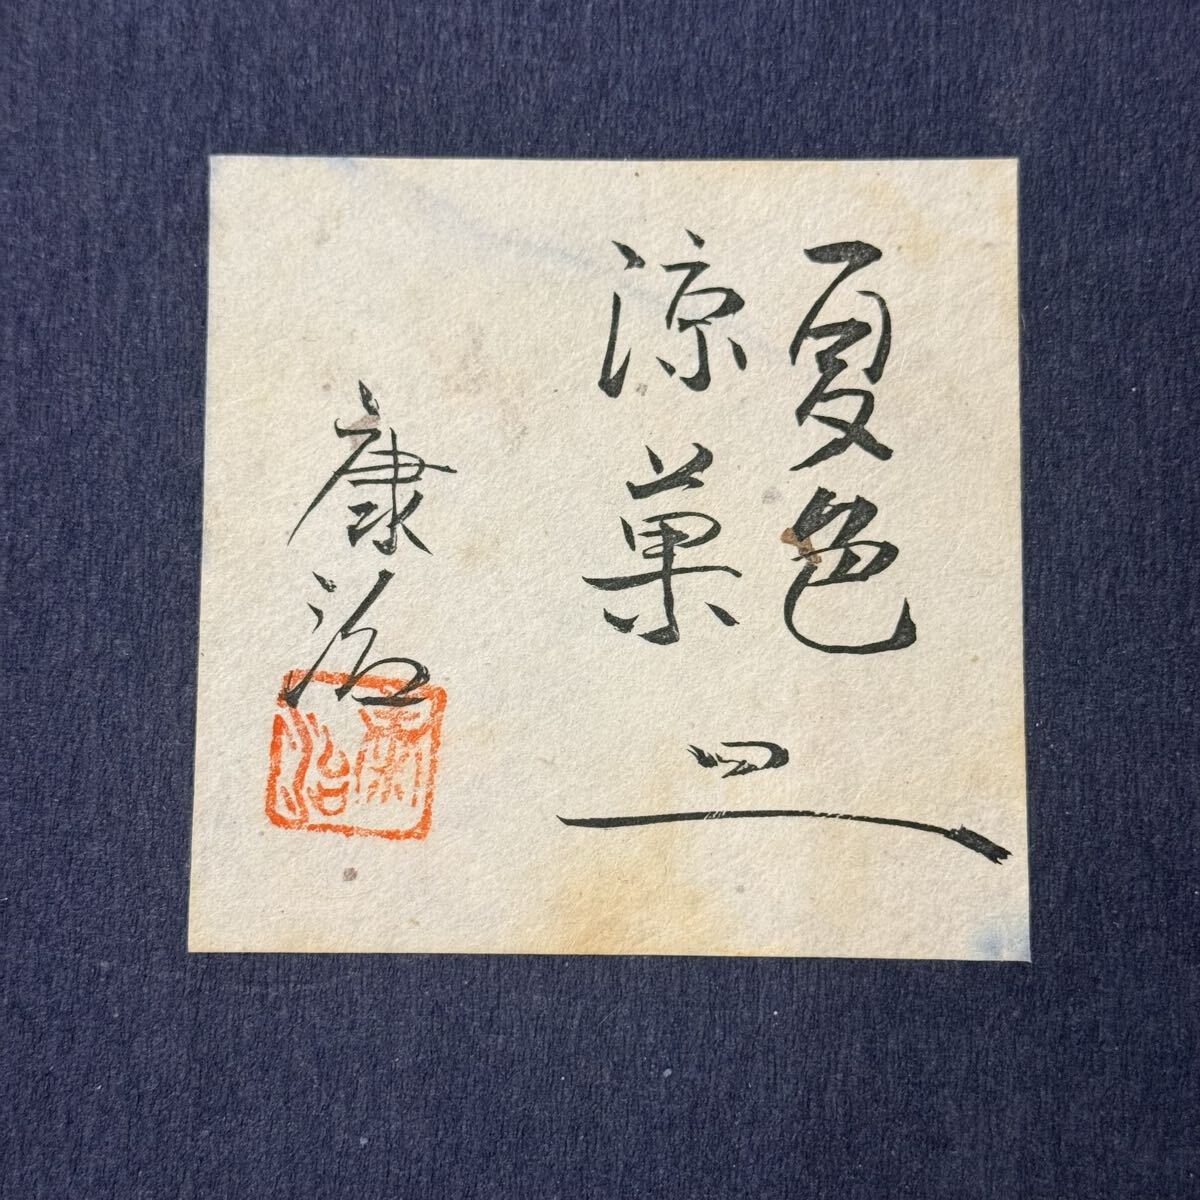 夏色
涼菓
皿
康治